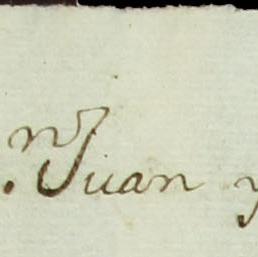 .n Juan y